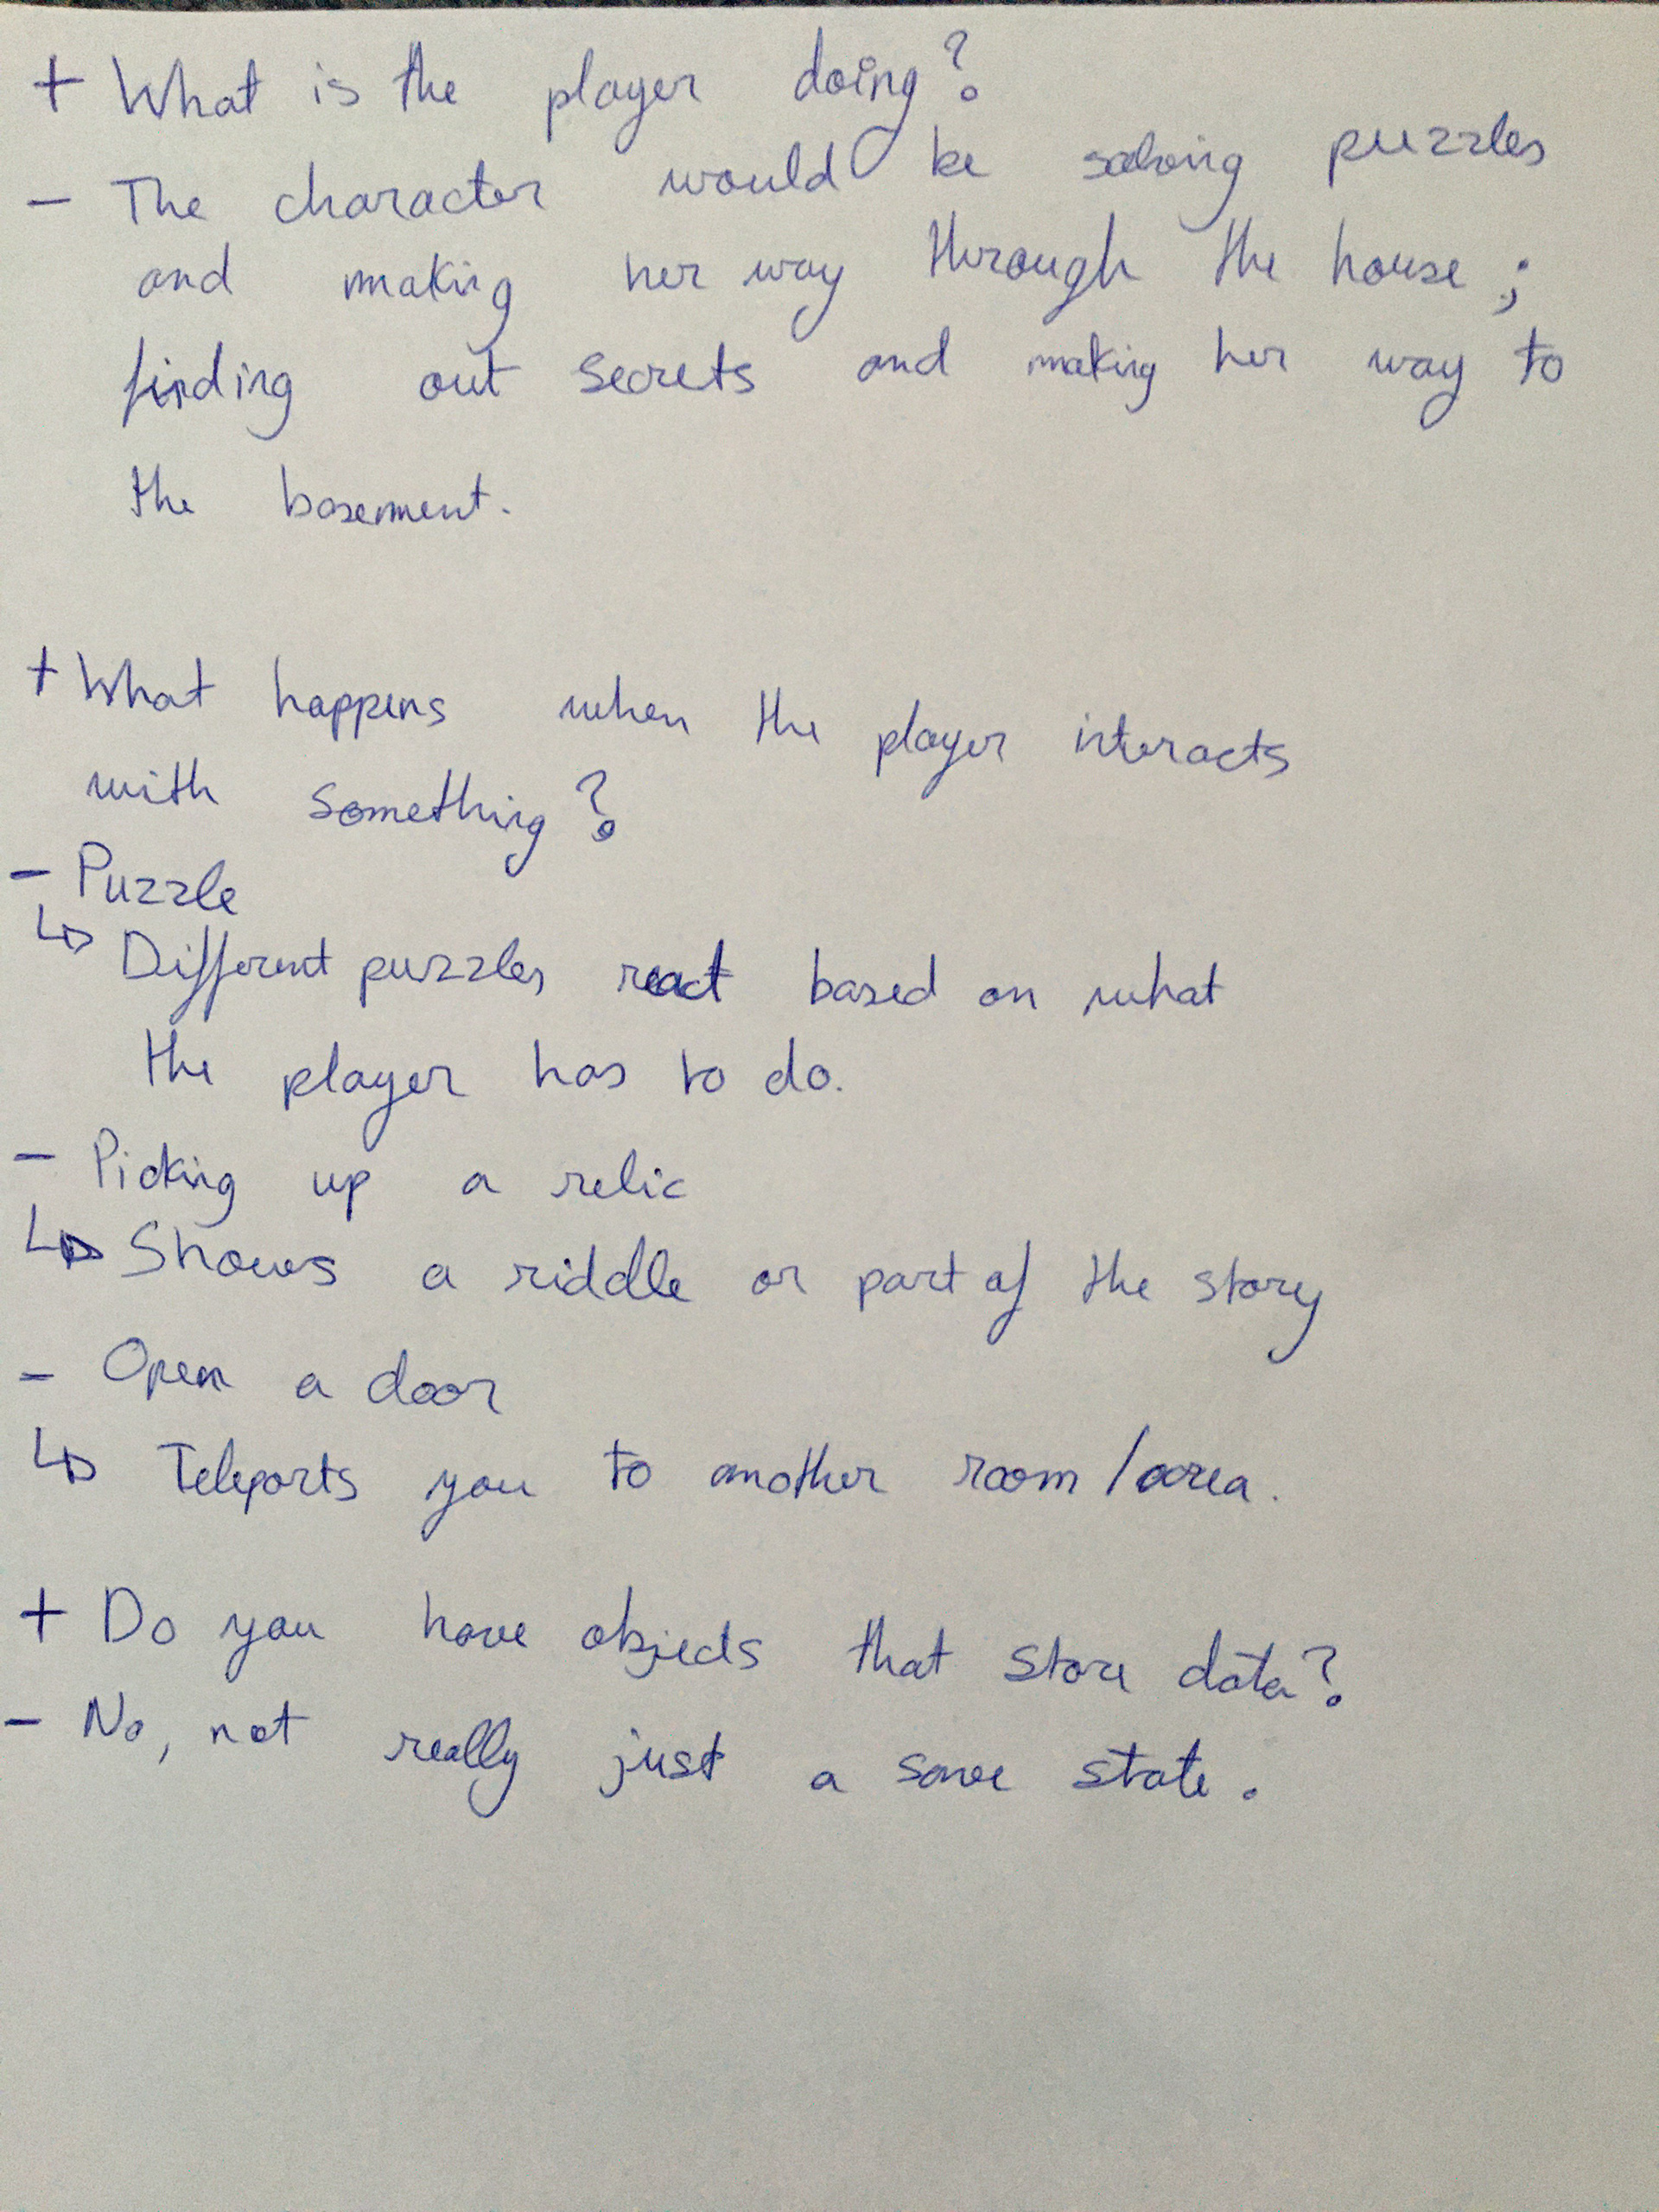 + What is the player doing?
- The character would be solving puzzles
and making her way through the house;
finding out secrets and making her way to
the basement.
+ What happens when the player interacts
with something?
- Puzzle
↳ Different puzzles react based on what
the player has to do.
- Picking up a relic
↳ Shows a riddle or part of the story
- Open a door
↳ Teleports you to another room/area.
+ Do you have objects that store data?
- No, not really just a save state.